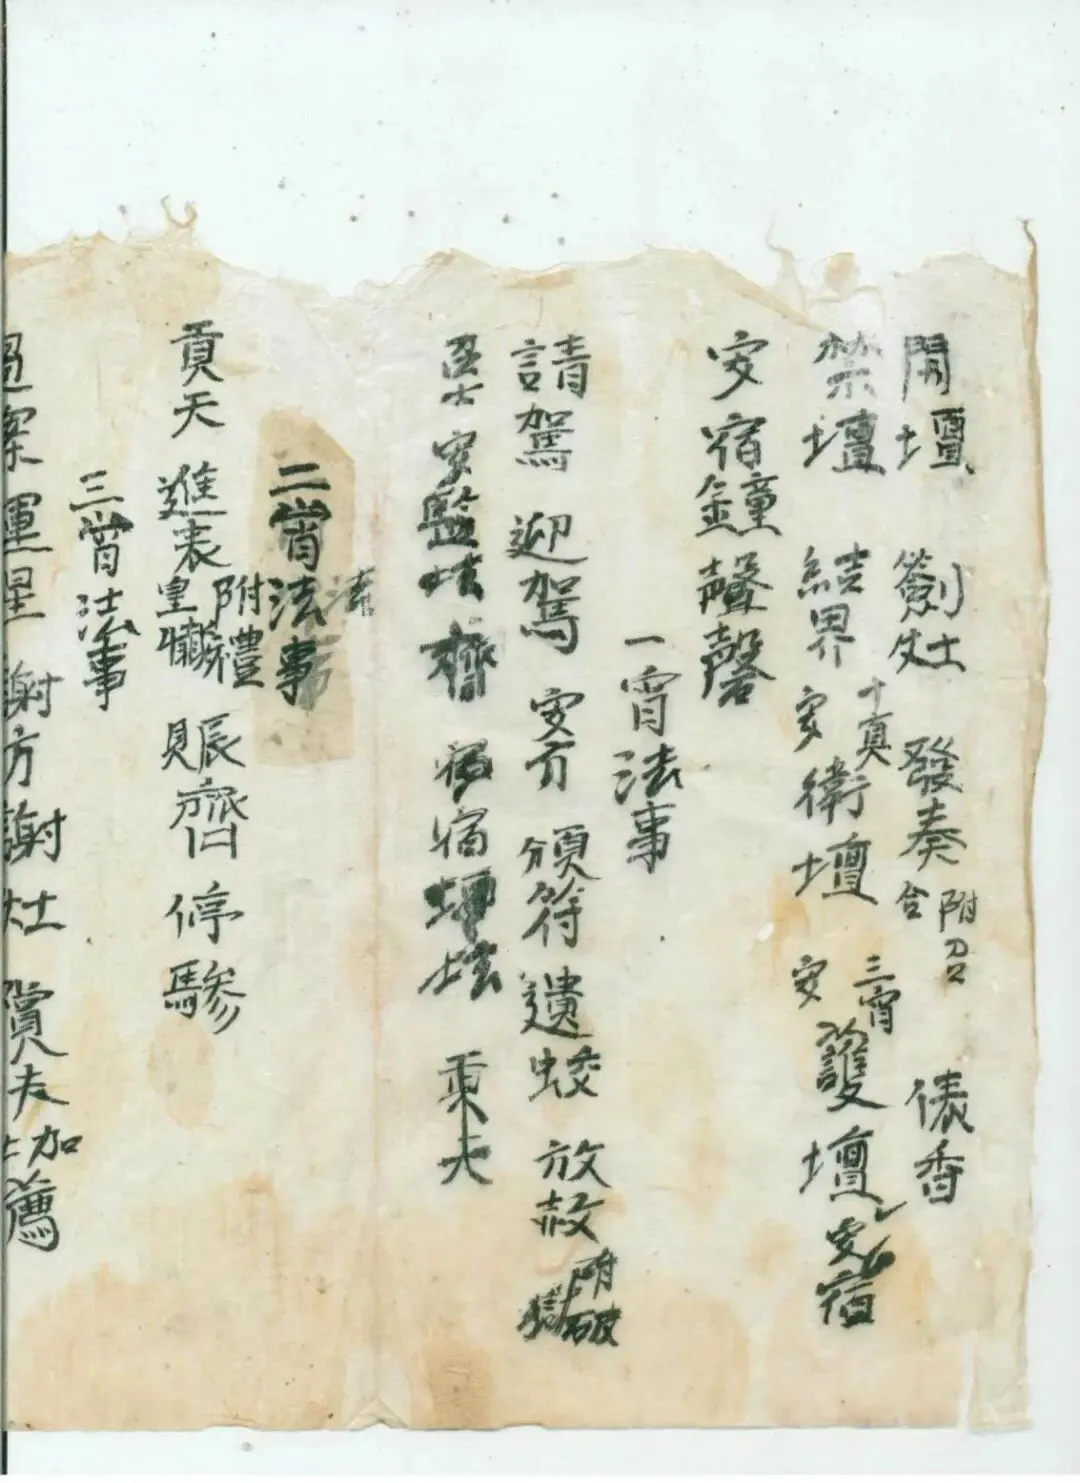 開壇 劄灶 發奏 附召合 俵香
禁壇 結界 安十真衛壇 安三宵護壇 安宿
安宿鐘聲磬
一宵法事
請駕 迎駕 安方 頒符 遣蛟 放赦 附破獄
安監 齋 宿 夫
二宵法事
貢天 進表 附禮皇懺 賑齋 停驂
三宵法事
運星 謝方 謝灶 賞夫 加薦